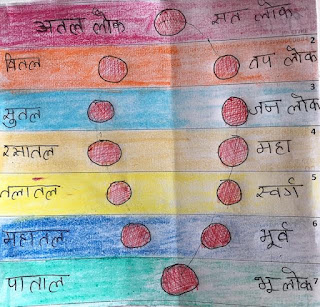 अतल लोक सत लोक
2
वितल तप लोक
3
सुतल जन लोक
4
रसातल महा
5
तलातल स्वर्ग
6
महातल भूर्व
7
पाताल भू लोक